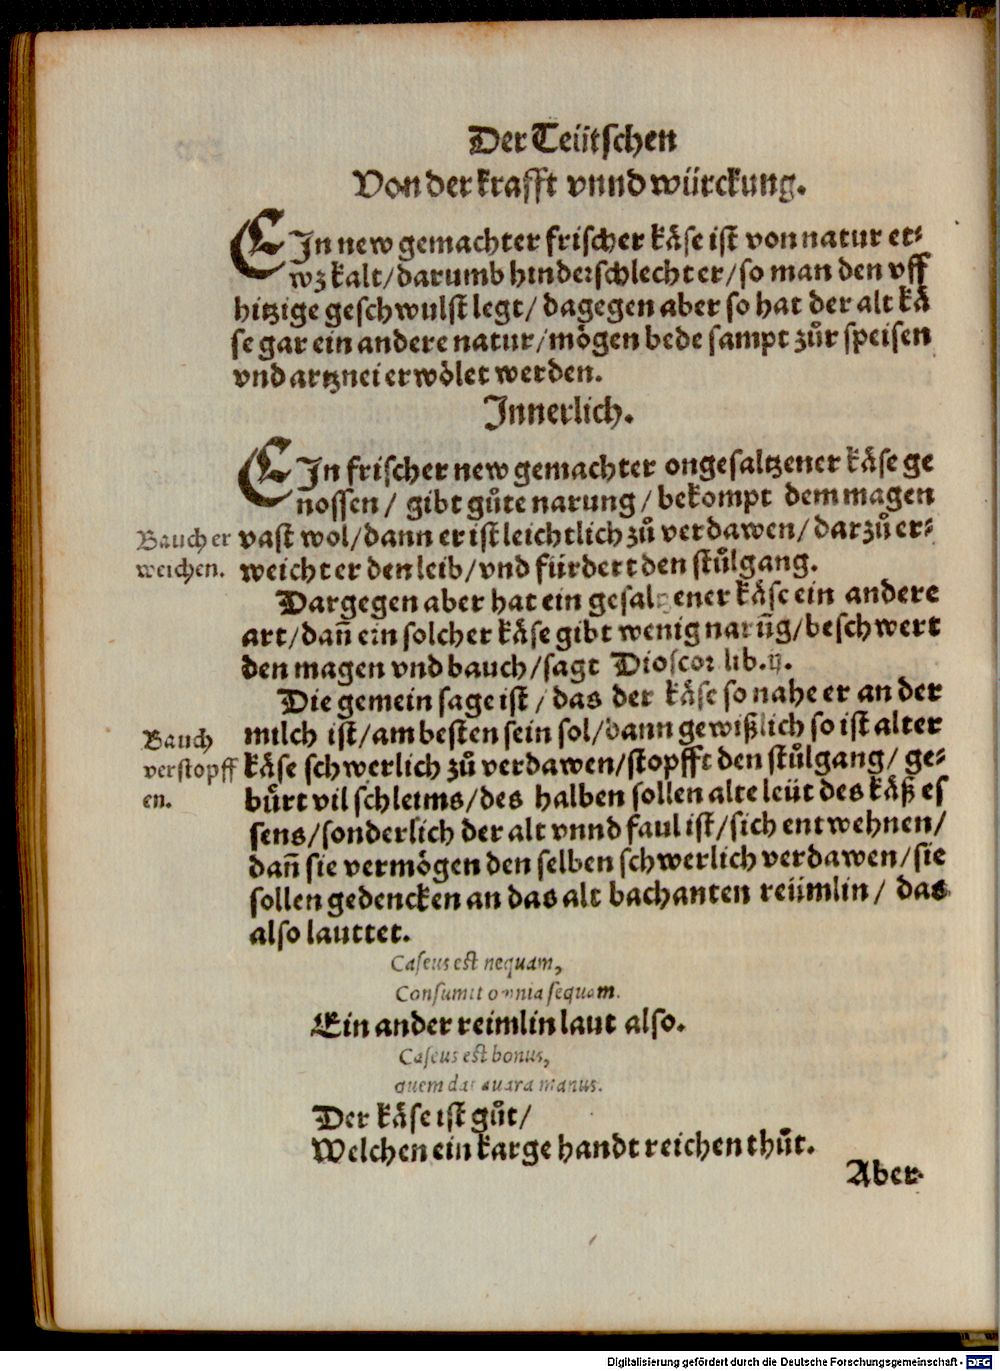 Der Teütschen
Von der krafft vnnd würckung.
EIn new gemachter frischer käse ist von natur et-
wz kalt/darumb hinderschlecht er/so man den vff
hitzige geschwulst legt/ dagegen aber so hat der alt kä
se gar ein andere natur/mögen bede sampt zůr speisen
vnd artznei erwölet werden.
Innerlich.
EIn frischer new gemachter ongesaltzener käse ge
nossen/ gibt gůte narung/bekompt dem magen
vast wol/dann er ist leichtlich zů verdawen/darzů er-
weicht er den leib/vnd fürdert den stůlgang.
Baucher
weichen.
Dargegen aber hat ein gesaltzener käse ein andere
art/dañ ein solcher käse gibt wenig narũg/beschwert
den magen vnd bauch/sagt Dioscor lib.ij.
Die gemein sage ist/das der käse so nahe er an der
milch ist/am besten sein sol/dann gewißlich so ist alter
käse schwerlich zů verdawen/stopfft den stůlgang/ ge-
bürt vil schleims/des halben sollen alte leüt des käß es
sens/sonderlich der alt vnnd faul ist/sich entwehnen/
dañ sie vermögen den selben schwerlich verdawen/sie
sollen gedencken an das alt bachanten reümlin/ das
also lauttet.
Bauch
verstopff
en.
Caseus est nequam,
Consumit omnia sequam.
Ein ander reimlin laut also.
Caseus est bonus,
quem dat auara manus.
Der käse ist gůt/
Welchen ein karge handt reichen thůt.
Aber
Digitalisierung gefördert durch die Deutsche Forschungsgemeinschaft - DFG